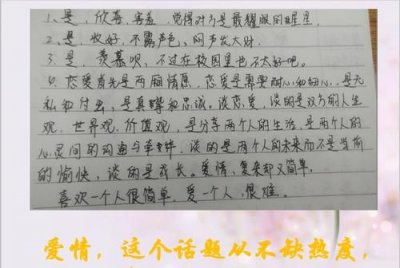 1、是，欣喜，害羞，觉得对方是最耀眼的星星.
2、是，收好，不露声色，闷声发大财.
3、是，羡慕呗，不过在校园里也不太好吧。
4、恋爱首先是两厢情愿，恋爱是需要耐心和细心，是无
私和付出，是真挚和忠诚。谈恋爱，谈的是双方的人生
观，世界观，价值观，是分享两个人的生活，是两个人的
心灵间的沟通与，谈的是两个人的未来而不是当前
的愉快，谈的是成长。爱情，复杂却又简单，
喜欢一个人很简单，爱一个人，很难。
爱情，这个话题从不缺热度，